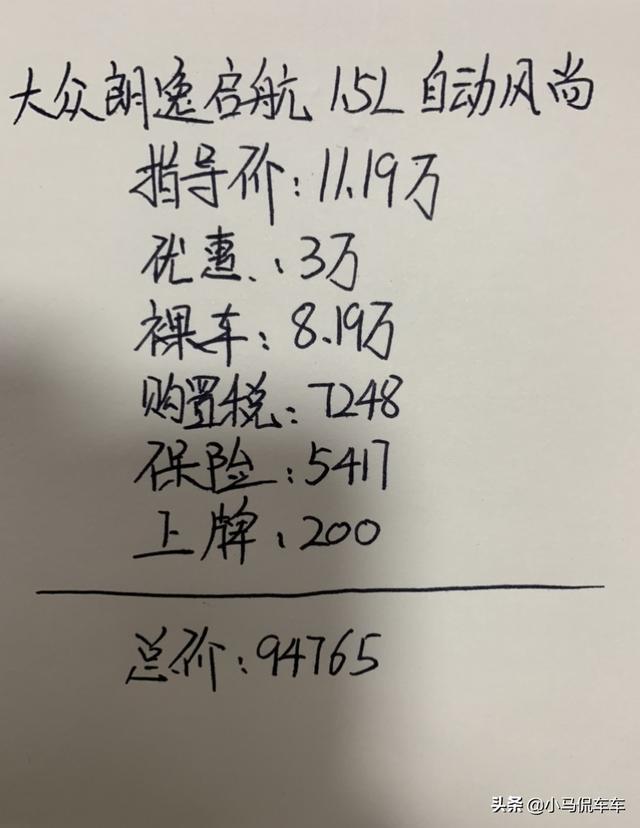 大众朗逸启航 1.5L 自动风尚
指导价:11.19万
优惠:3万
裸车:8.19万
购置税:7248
保险:5417
上牌:200
总价:94765
头条 @小马侃车车